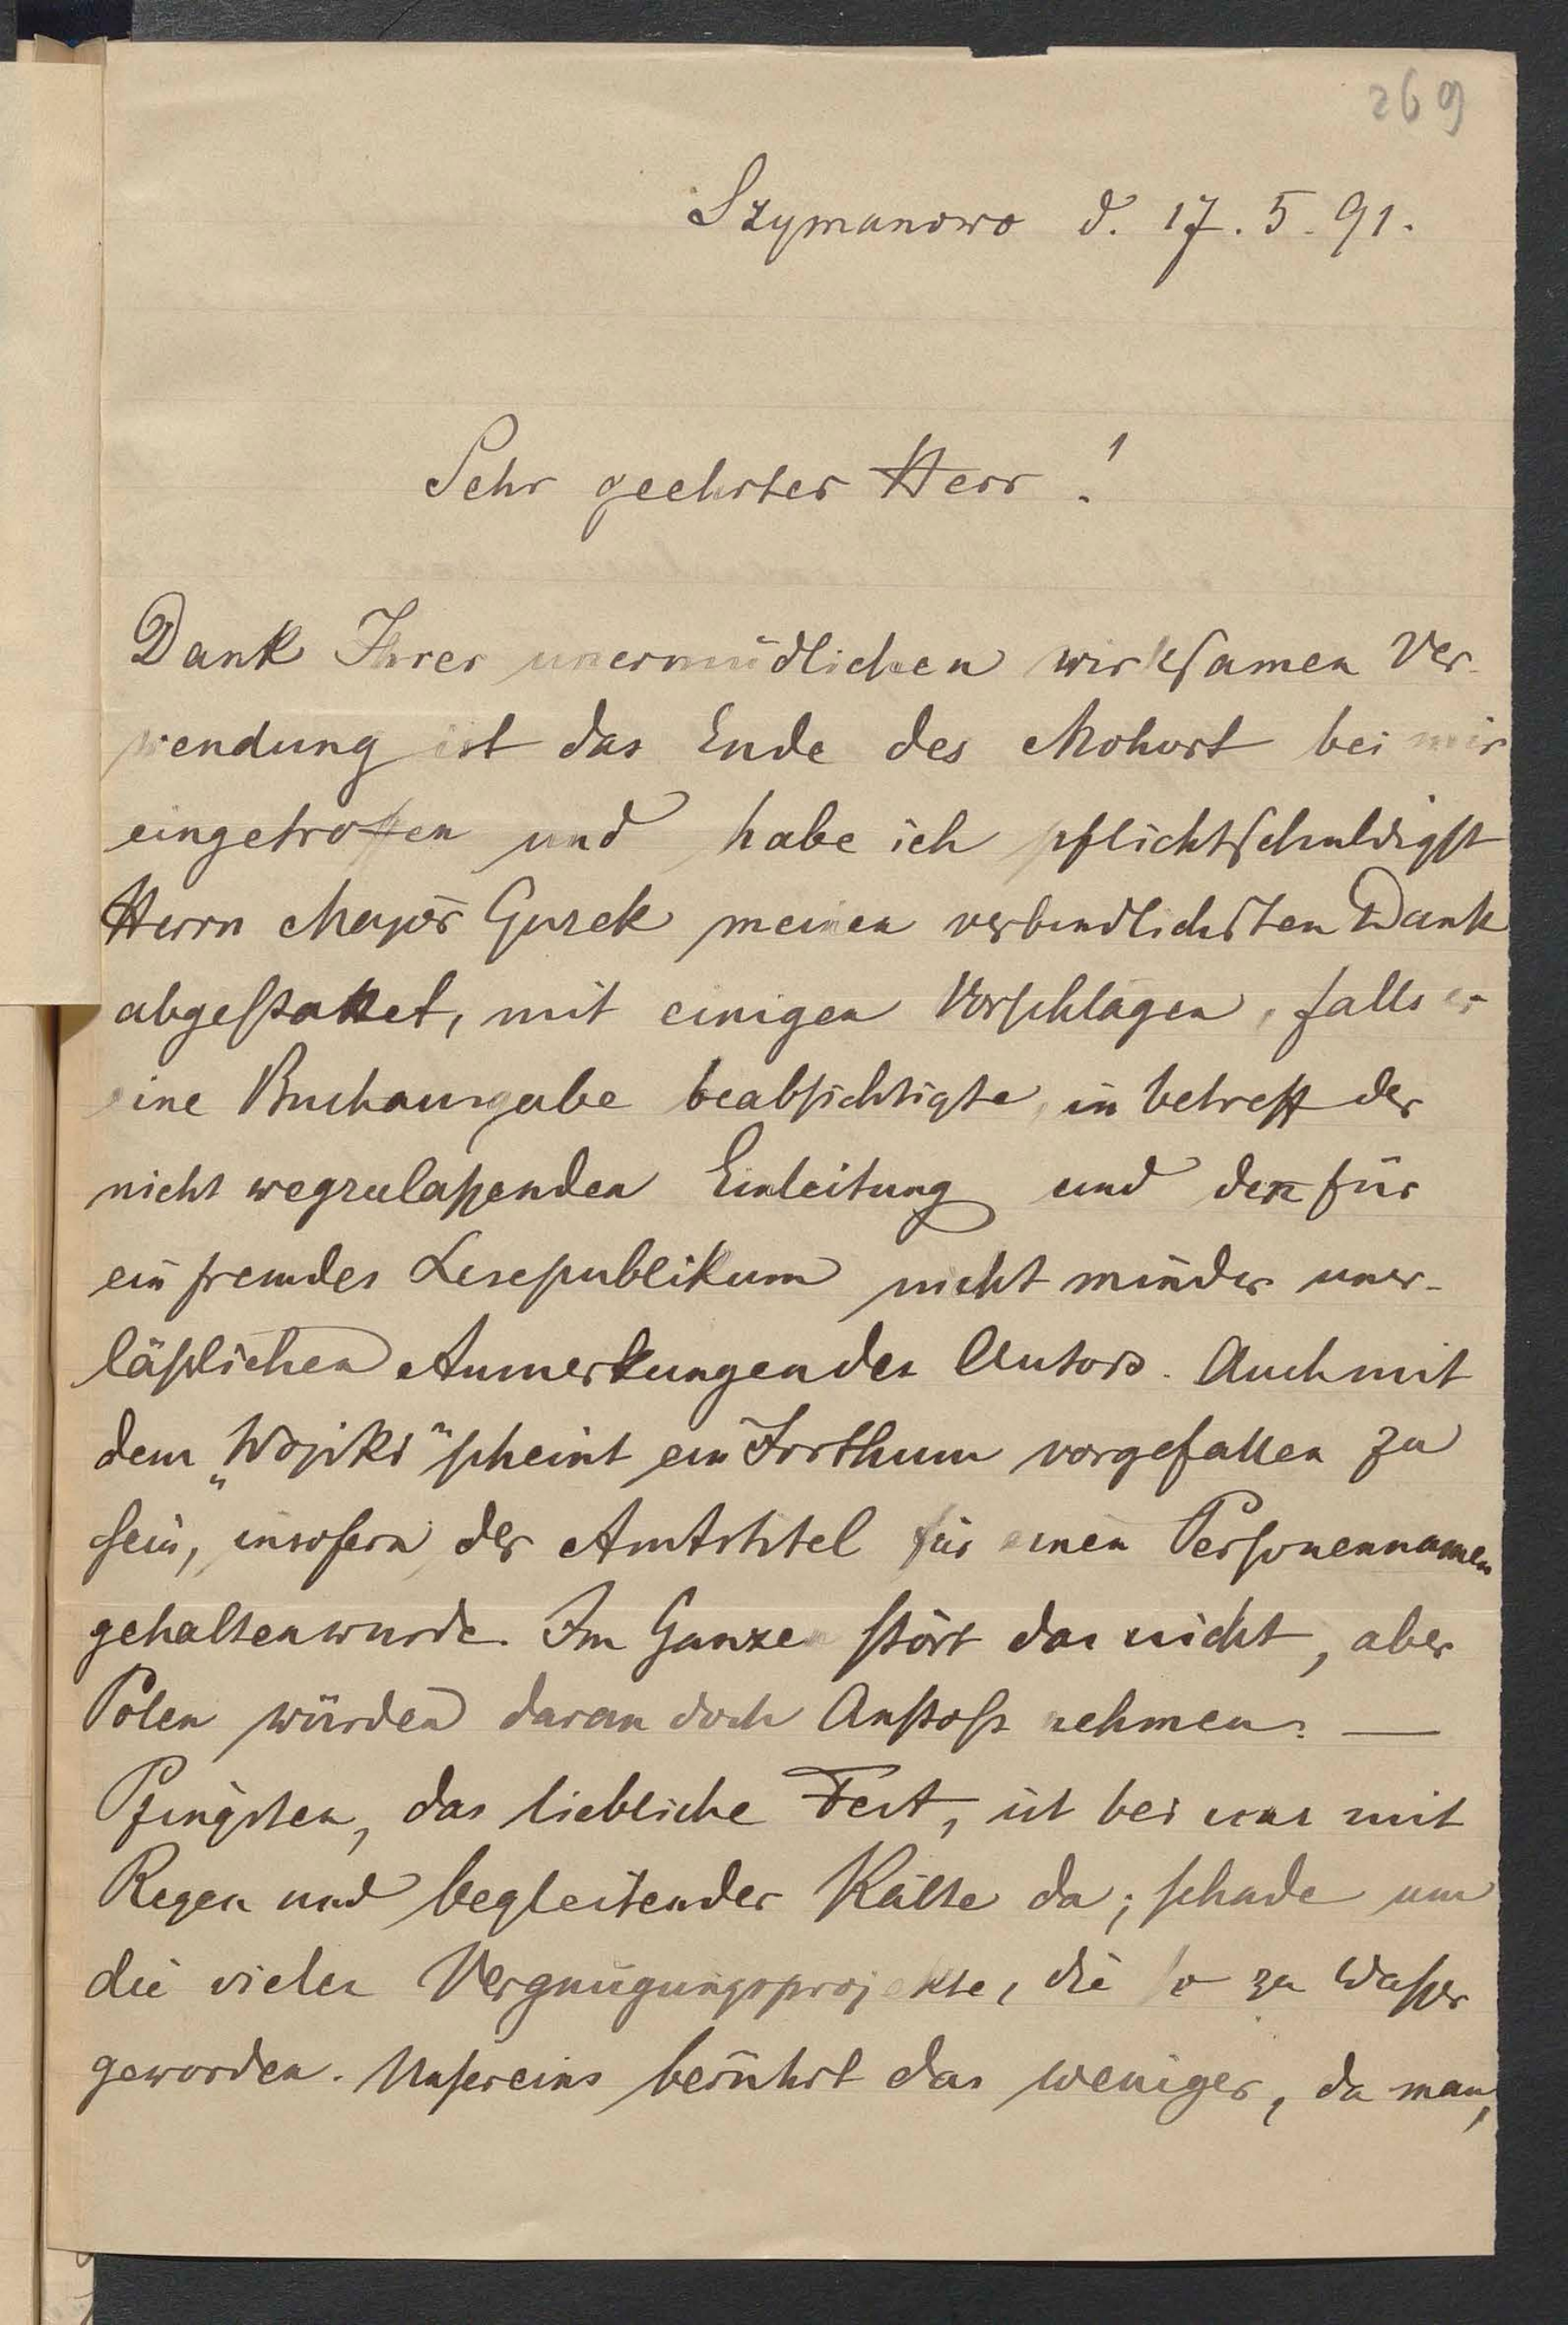 269
Szymanowo d. 17. 5. 91.
Sehr geehrter Herr!
Dank Ihrer unermüdlichen wirksamen Ver-
wendung ist das Ende des Mohort bei mir
eingetroffen und habe ich pflichtschuldigst
Herrn Major Gurek meinen verbindlichsten Dank
abgestattet, mit einigen Vorschlägen, falls er
eine Buchausgabe beabsichtigte, in betreff der
nicht wegzulaßenden Einleitung und den für
ein fremdes Lesepublikum nicht minder uner-
läßlichen Anmerkungen des Autors. Auch mit
dem „Wojski“ scheint ein Irrthum vorgefallen zu
sein, insofern der Amtstitel für einen Personennamen
gehalten wurde. Im Ganzen stört das nicht, aber
Polen würden daran doch Anstoß nehmen. —
Pfingsten, das liebliche Fest, ist bei uns mit
Regen und begleitender Kälte da; schade um
die vielen Vergnügungsprojekte, die so zu Waßer
geworden. Unsereins berührt das weniger, da man,